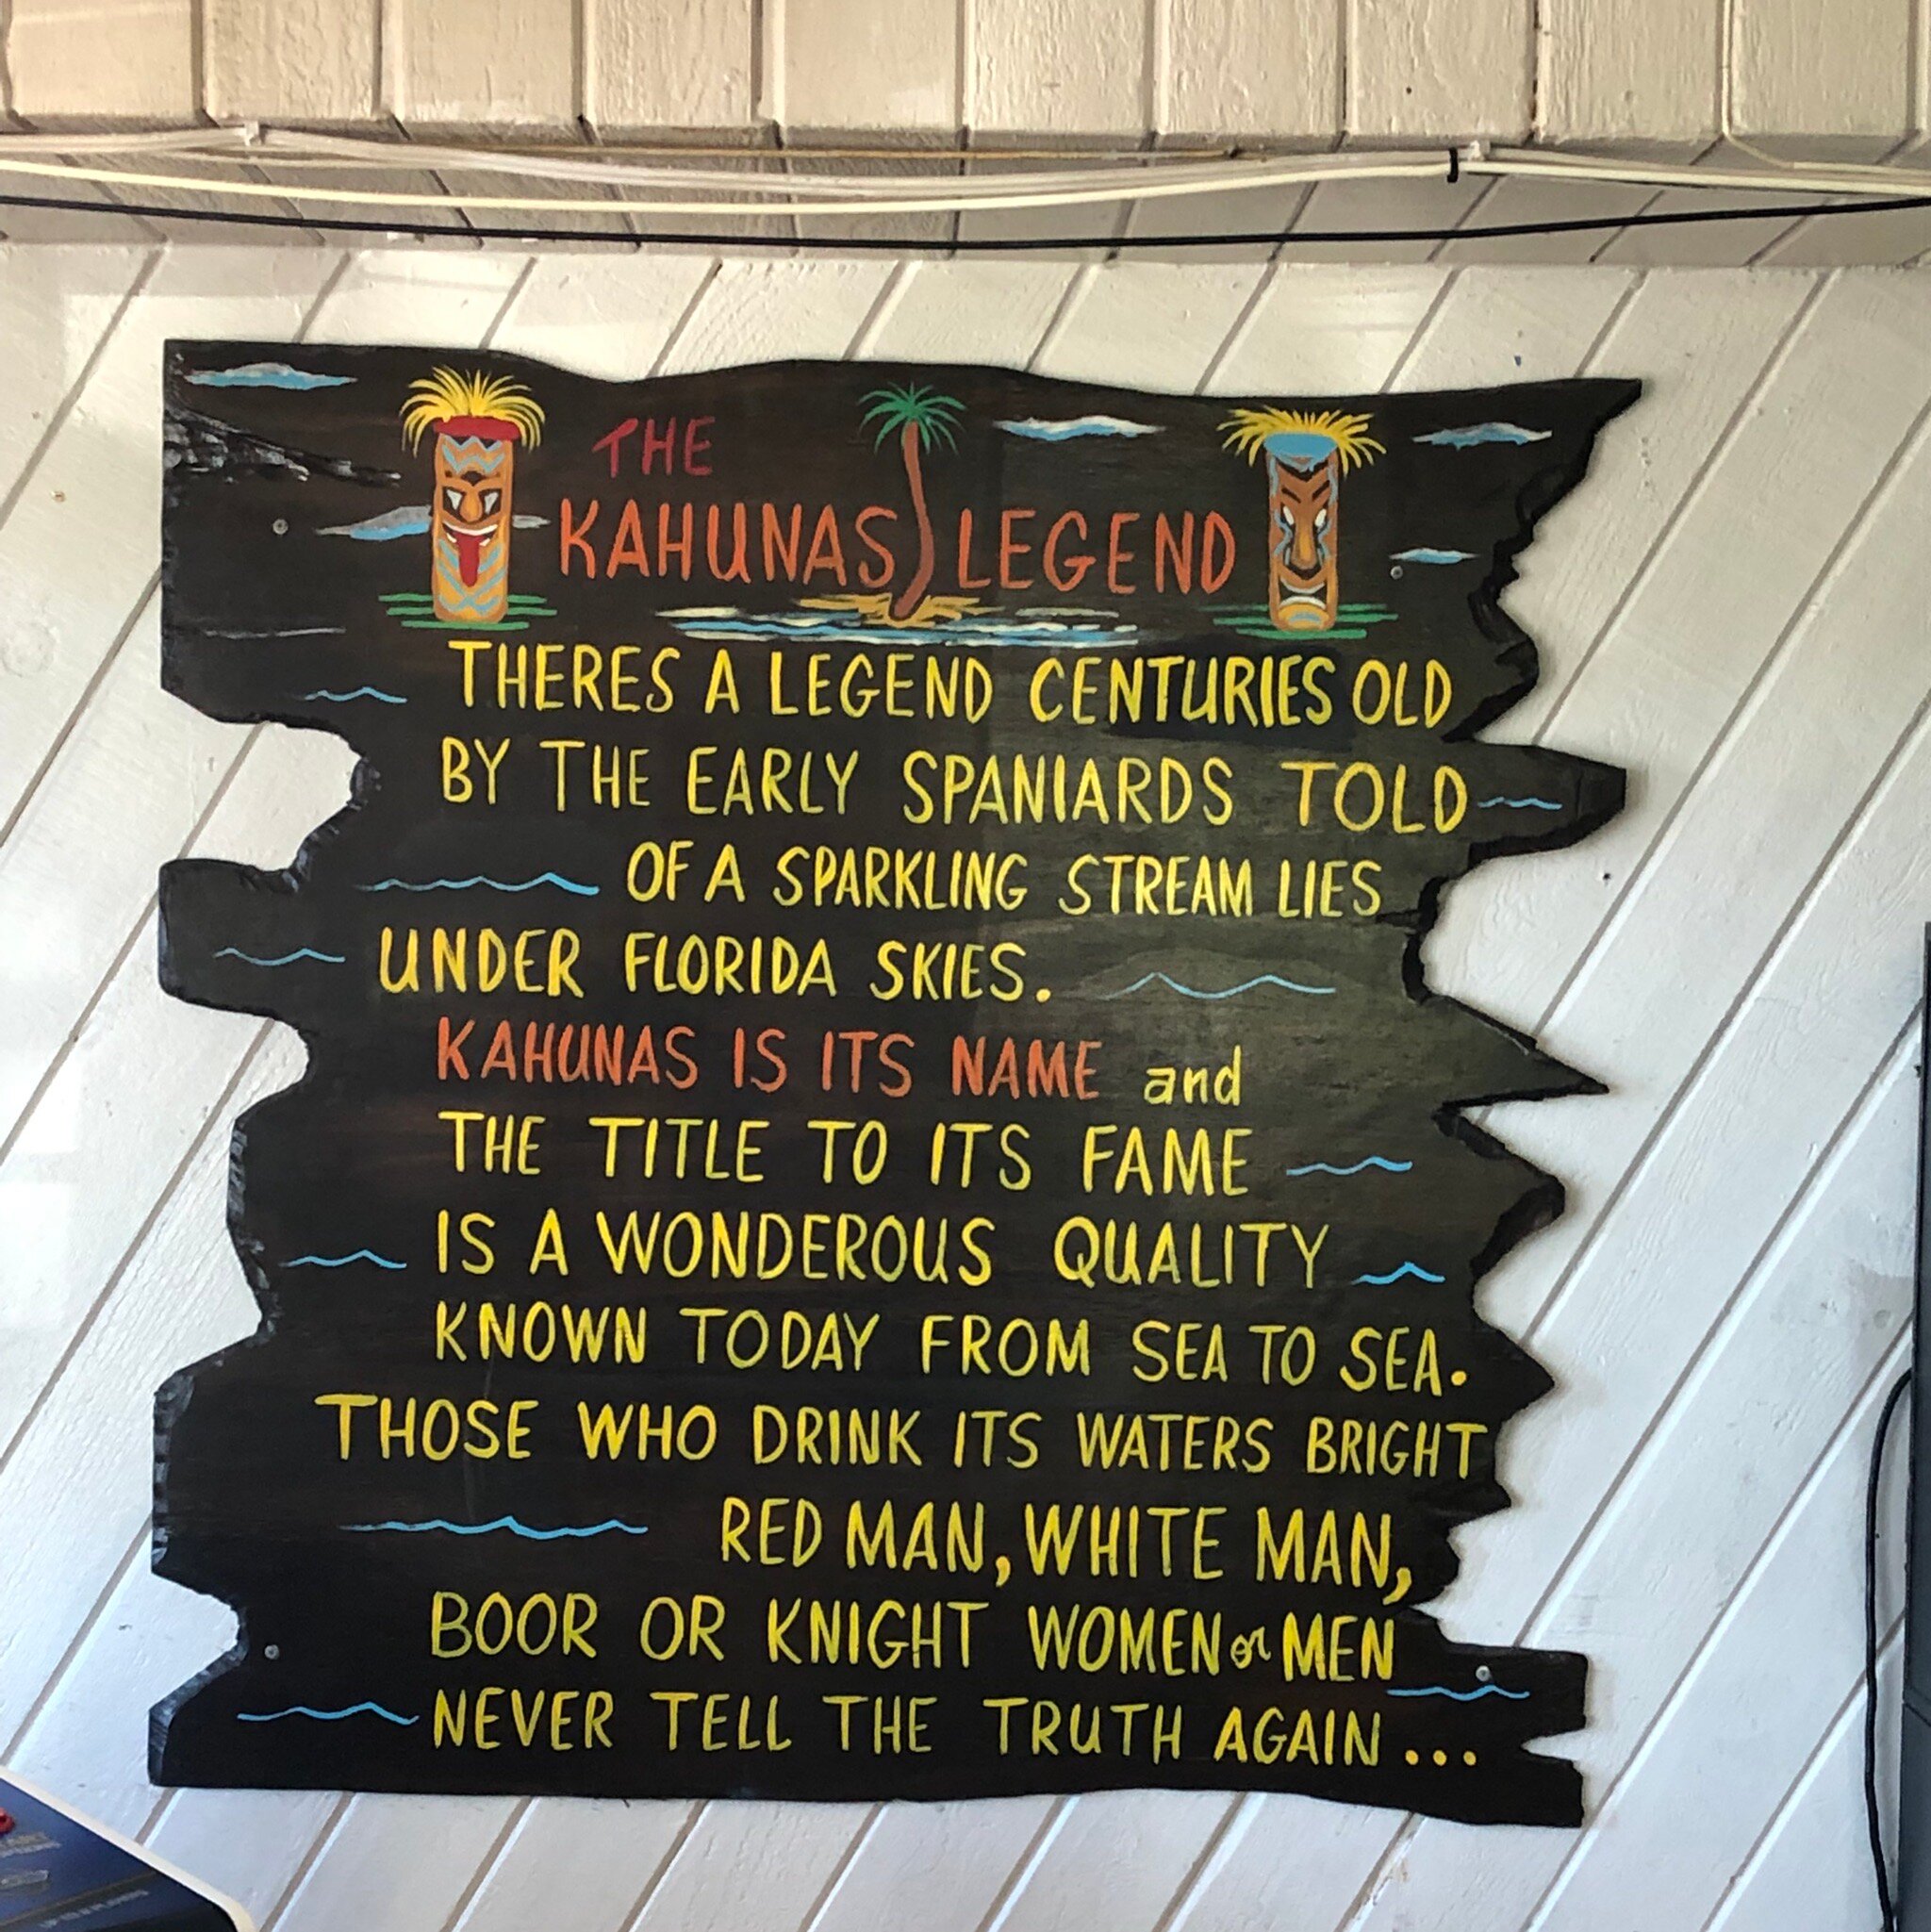 THE
KAHUNAS LEGEND
THERES A LEGEND CENTURIES OLD
BY THE EARLY SPANIARDS TOLD
OF A SPARKLING STREAM LIES
UNDER FLORIDA SKIES.
KAHUNAS IS ITS NAME and
THE TITLE TO ITS FAME
IS A WONDEROUS QUALITY
KNOWN TODAY FROM SEA TO SEA.
THOSE WHO DRINK ITS WATERS BRIGHT
RED MAN, WHITE MAN,
BOOR OR KNIGHT WOMEN or MEN
NEVER TELL THE TRUTH AGAIN...